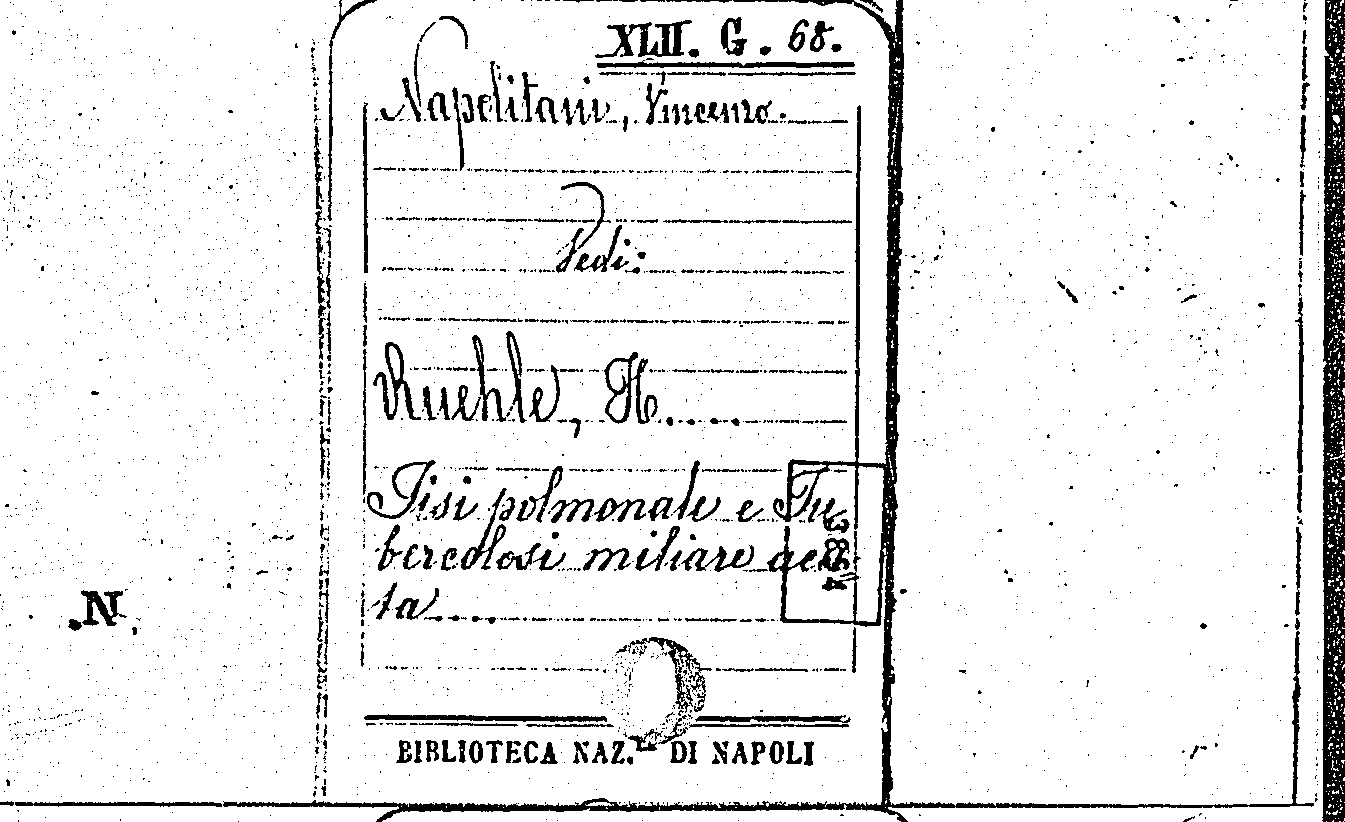 XLII. G. 68.
Napolitani, Vincenzo.
Vedi:
Ruehle, H....
Tisi polmonale e Tu
bercolosi miliare acu
ta....
3864
N.
BIBLIOTECA NAZ. DI NAPOLI